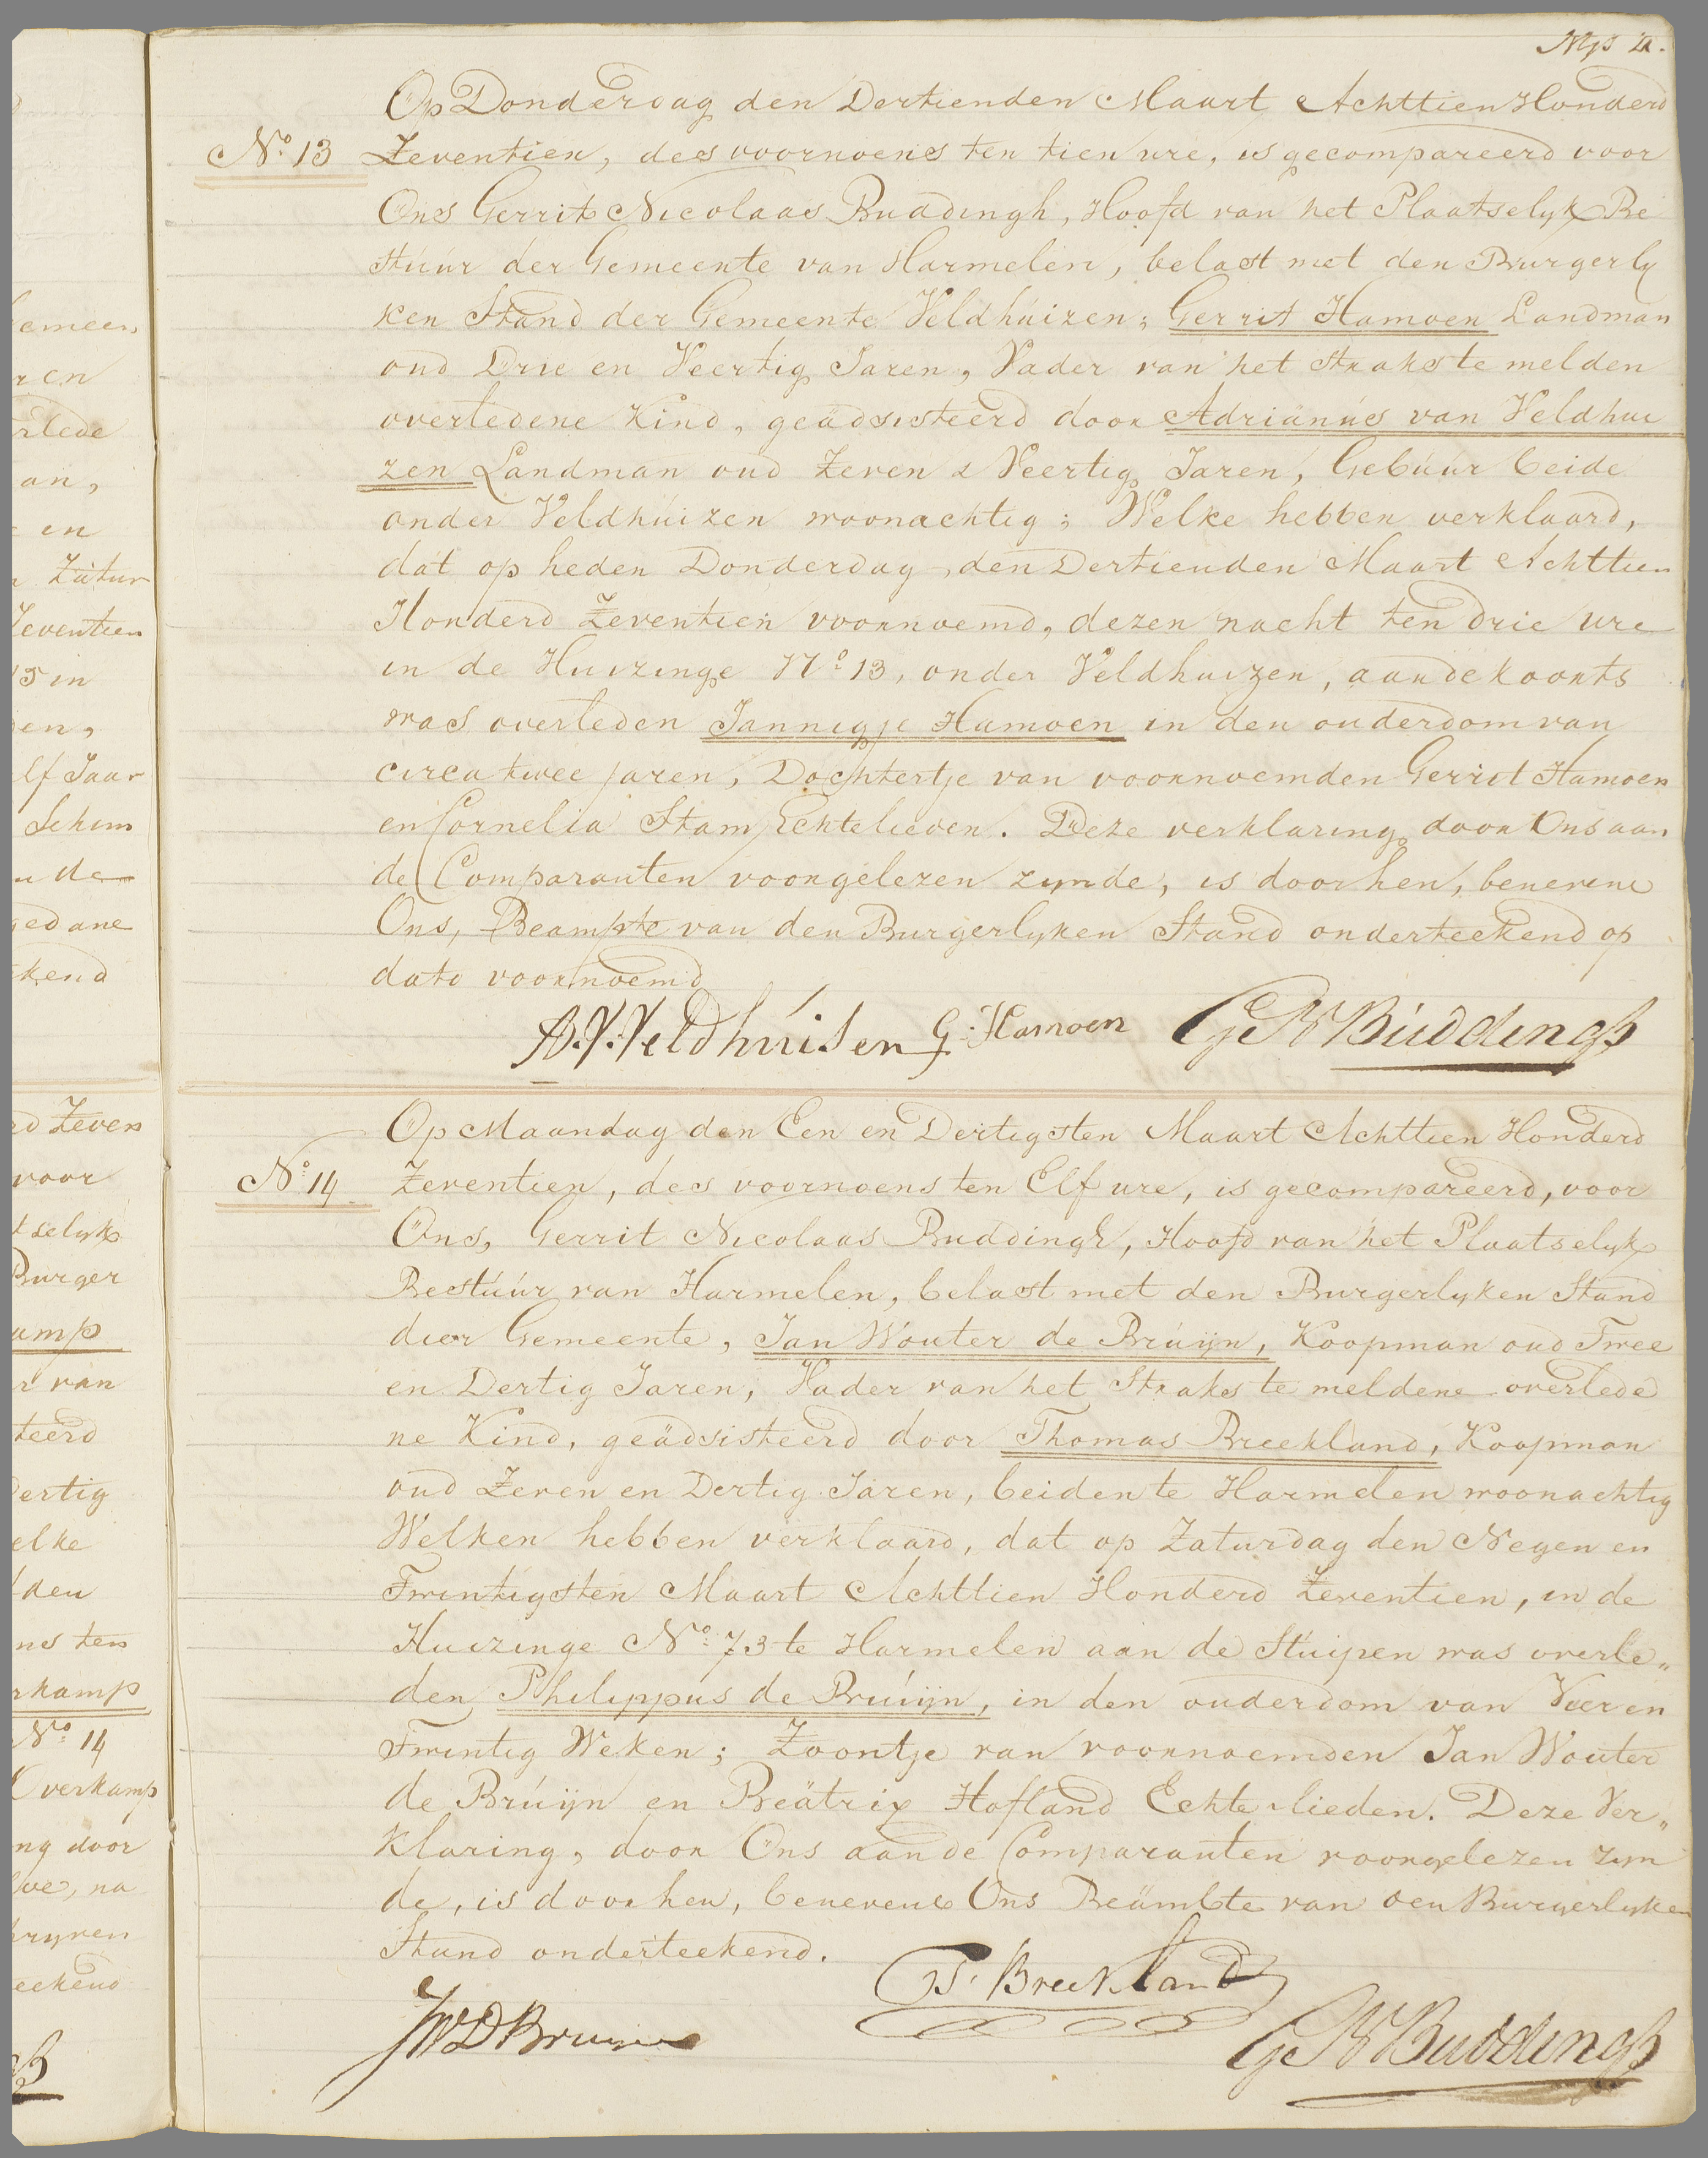 Op Donderdag den Dertienden Maart Achttien Honderd
N.º 13 Zeventien, des voornoens ten tien ure, is gecompareerd voor
Ons Gerrit Nicolaas Buddingh, Hoofd van het Plaatselyk Be
stuur der Gemeente van Harmelen, belast met den Burgerly
ken Stand der Gemeente Veldhuizen; Gerrit Hamoen Landman
oud Drie en Veertig Jaren, Vader van het straks te melden
overledene Kind, geädsisteerd door Adrianus van Veldhui
zen Landman oud Zeven & Veertig Jaren, Gebuur beide
onder Veldhuizen woonachtig; Welke hebben verklaard,
dat op heden Donderdag, den Dertienden Maart Achttien
Honderd Zeventien voornoemd, dezen nacht ten drie ure
in de Huizinge Nº 13, onder Veldhuizen, aan de koorts
was overleden Jannigje Hamoen in den ouderdom van
circa twee jaren, Dochtertje van voornoemden Gerrit Hamoen
en Cornelia Stam Echtelieden. Deze verklaring door Ons aan
de Comparanten voorgelezen zynde, is door hen, benevens
Ons, Beampte van den Burgerlyken Stand onderteekend op
dato voornoemd
A.V.Veldhuisen G. Hamoen GN Buddingh
Op Maandag den Een en Dertigsten Maart Achttien Honderd
N.º 14 Zeventien, des voornoens ten Elf ure, is gecompareerd, voor
Ons, Gerrit Nicolaas Buddingh, Hoofd van het Plaatselyk
Bestuur van Harmelen, belast met den Burgerlyken Stand
dier Gemeente, Jan Wouter de Bruijn, Koopman oud Twee
en Dertig Jaren, Vader van het Straks te meldene overlede
ne Kind, geädsisteerd door Thomas Breekland, Koopman
oud Zeven en Dertig Jaren, beiden te Harmelen woonachtig
Welken hebben verklaard, dat op Zaturdag den Negen en
Twintigsten Maart Achttien Honderd Zeventien, in de
Huizinge N.º 73 te Harmelen aan de Stuipen was overle„
den Philippus de Bruijn, in den ouderdom van Vier en
Twintig Weken; Zoontje van voornoemden Jan Wouter
de Bruijn en Beätrix Hofland Echte lieden. Deze Ver„
klaring, door Ons aan de Comparanten voorgelezen zyn
de, is door hen, benevens Ons Beämbte van den Burgerlyken
Stand onderteekend.
T. Breekland
JWDBruijn
GN Buddingh